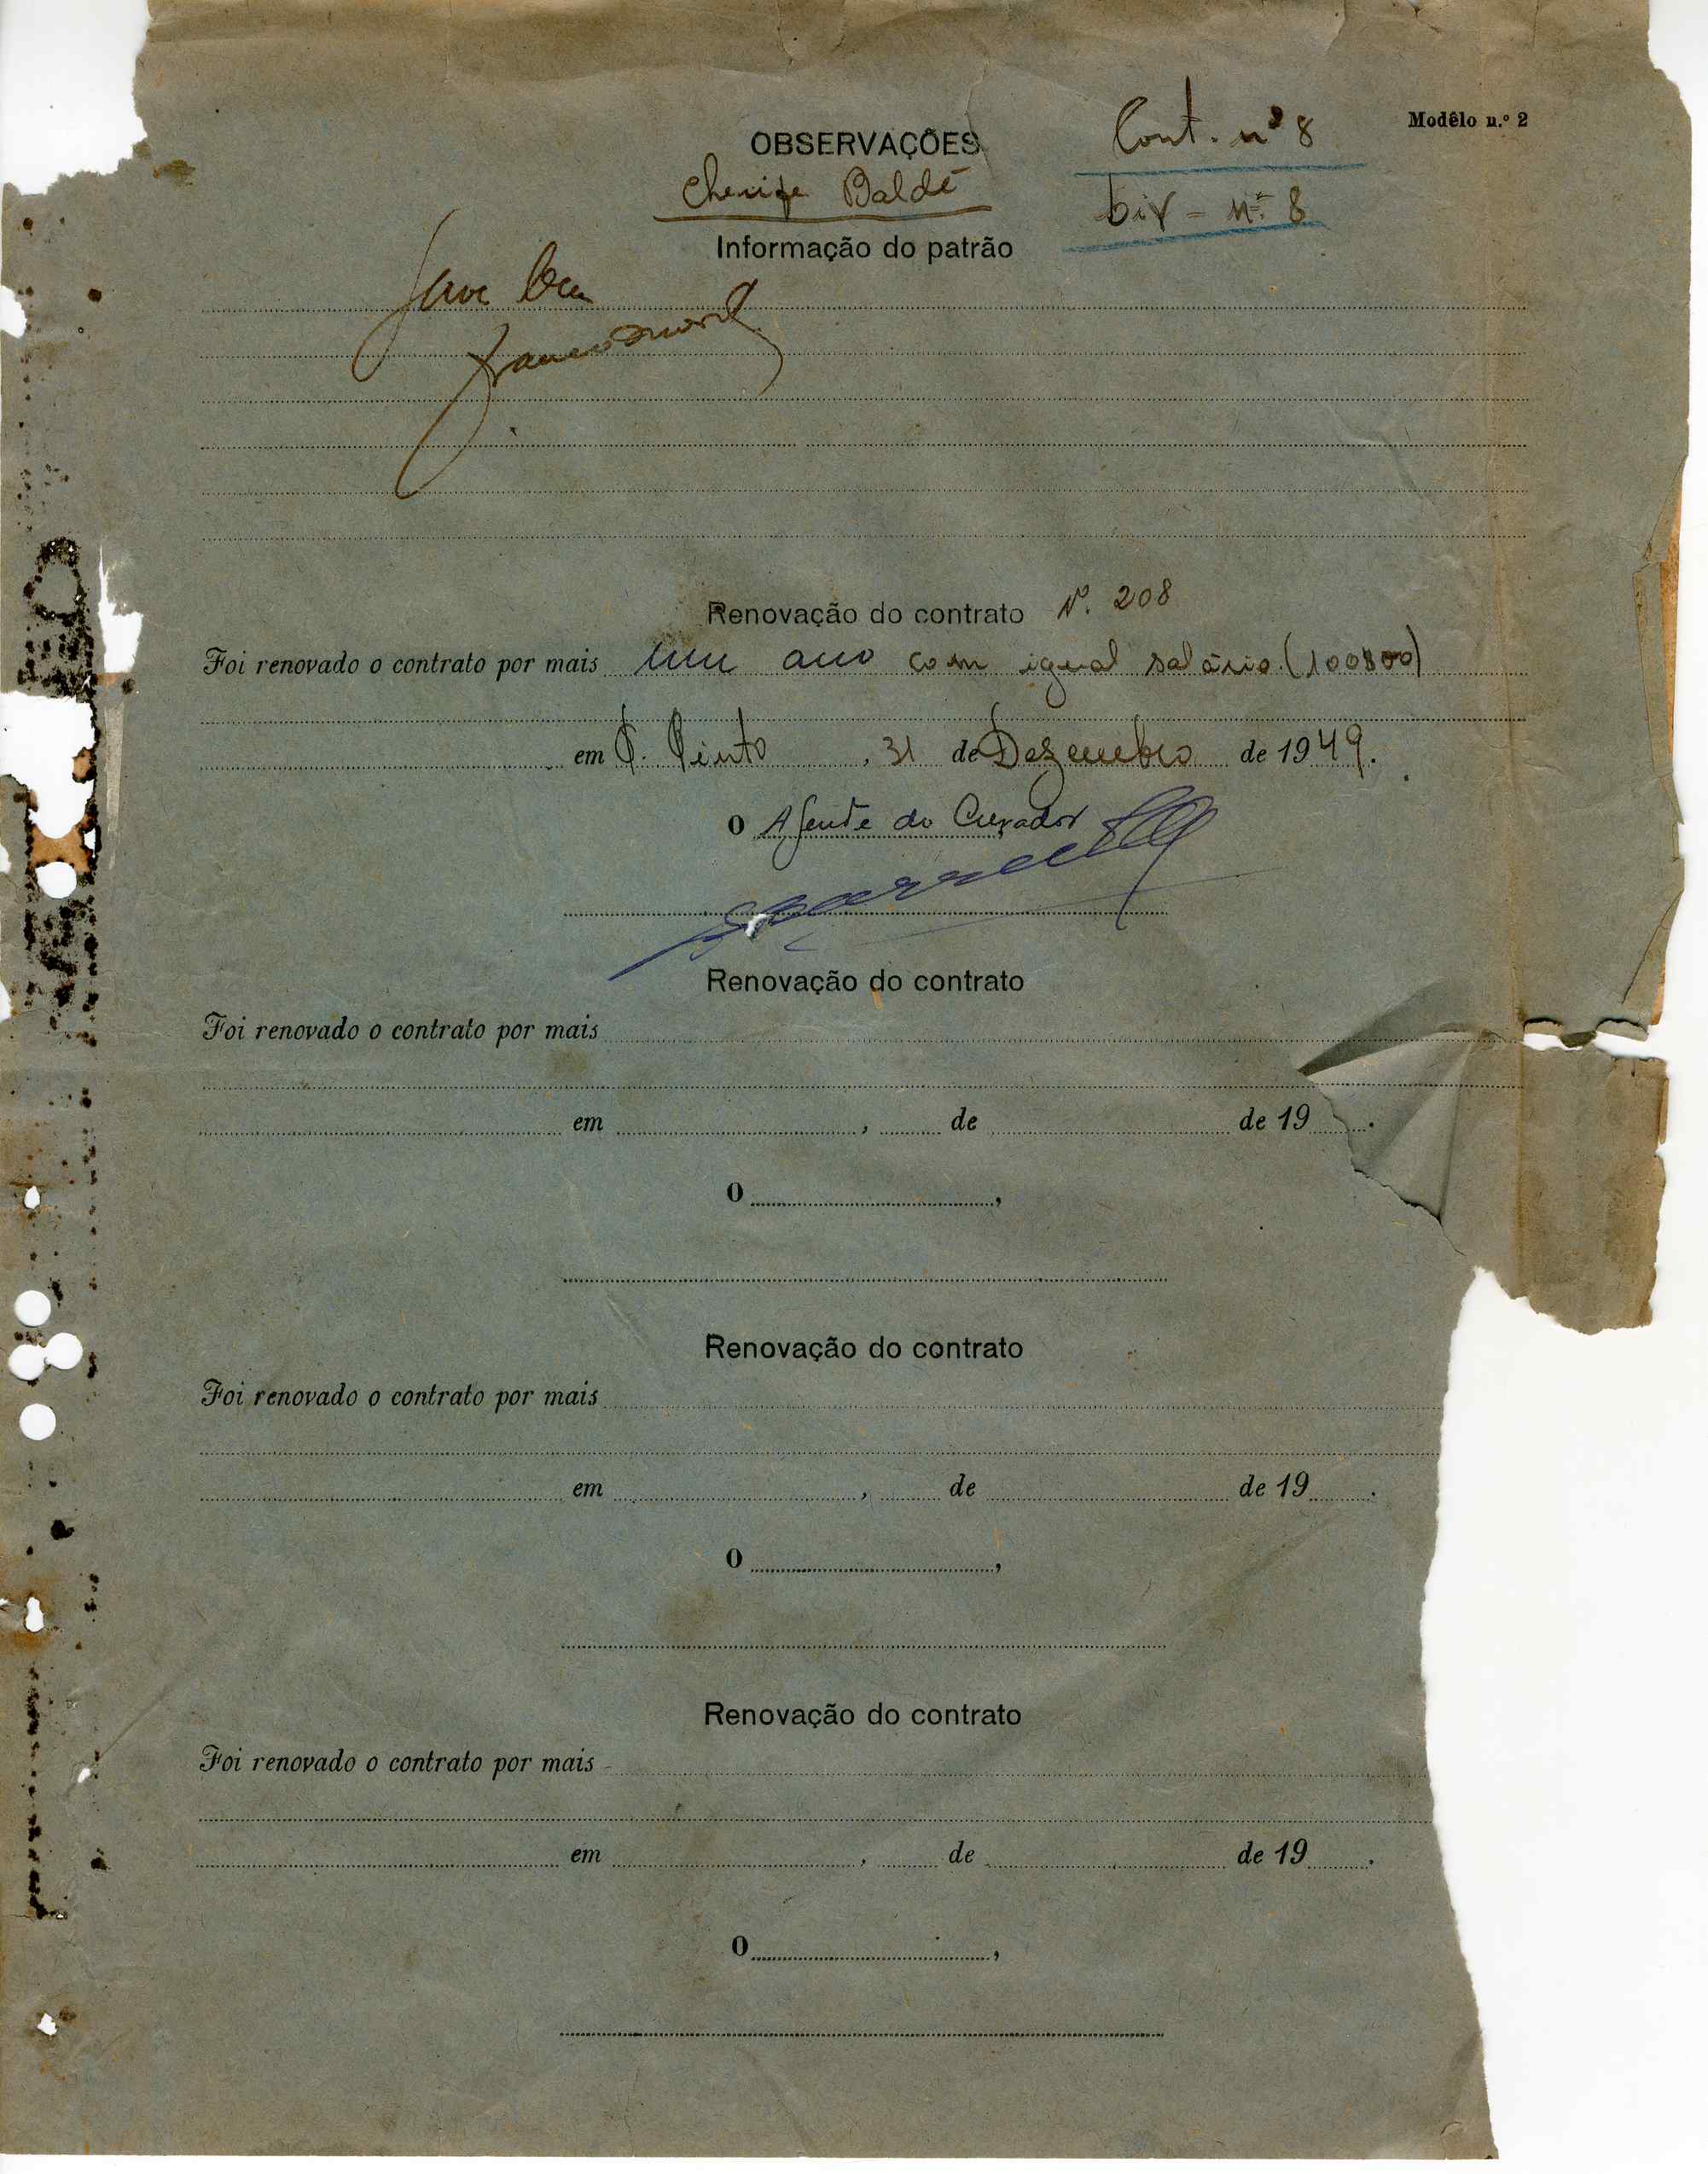 Modêlo n.º 2
Cont. nº 8
OBSERVAÇÕES
Cherife Baldé
biv - nº 8
Informação do patrão
Renovação do contrato Nº. 208
Foi renovado o contrato por mais um ano com igual salário (100$00)
em T. Pinto, 31 de Dezembro de 1949.
O Agente do Curador
Renovação do contrato
Foi renovado o contrato por mais
em , de de 19 .
O ,
Renovação do contrato
Foi renovado o contrato por mais
em , de de 19 .
O ,
Renovação do contrato
Foi renovado o contrato por mais
em , de de 19 .
O ,